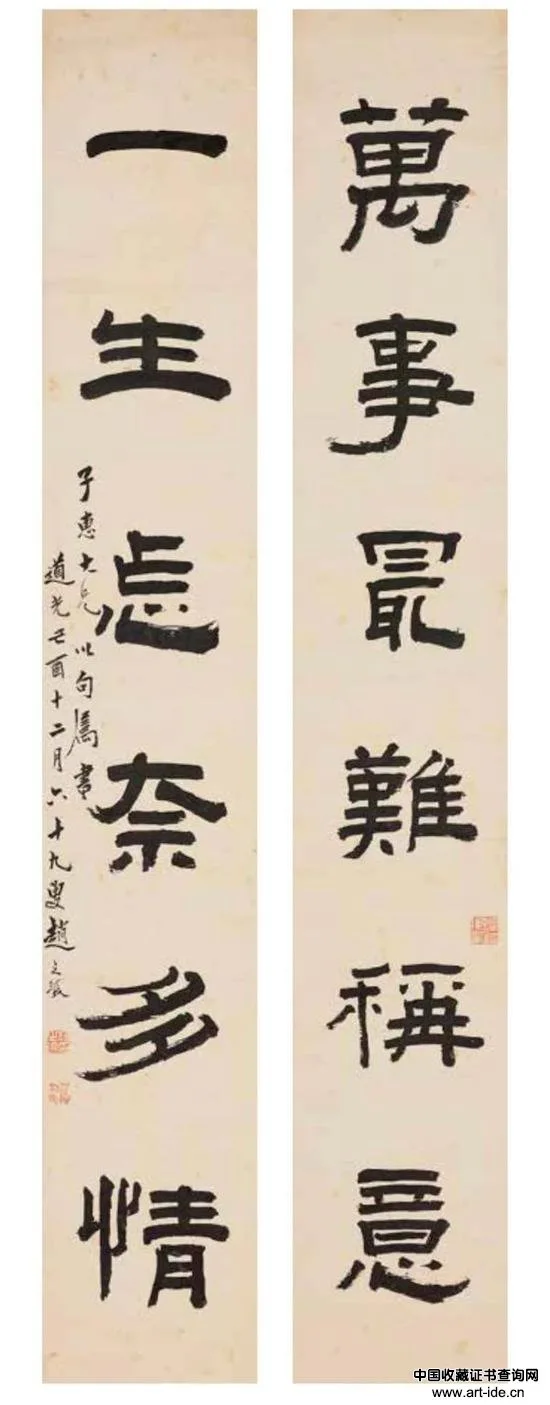 萬事最難稱意
一生怎奈多情
子惠大兄以句屬書
道光己酉十二月六十九叟趙之琛
中国收藏证书查询网
www.art-ide.cn